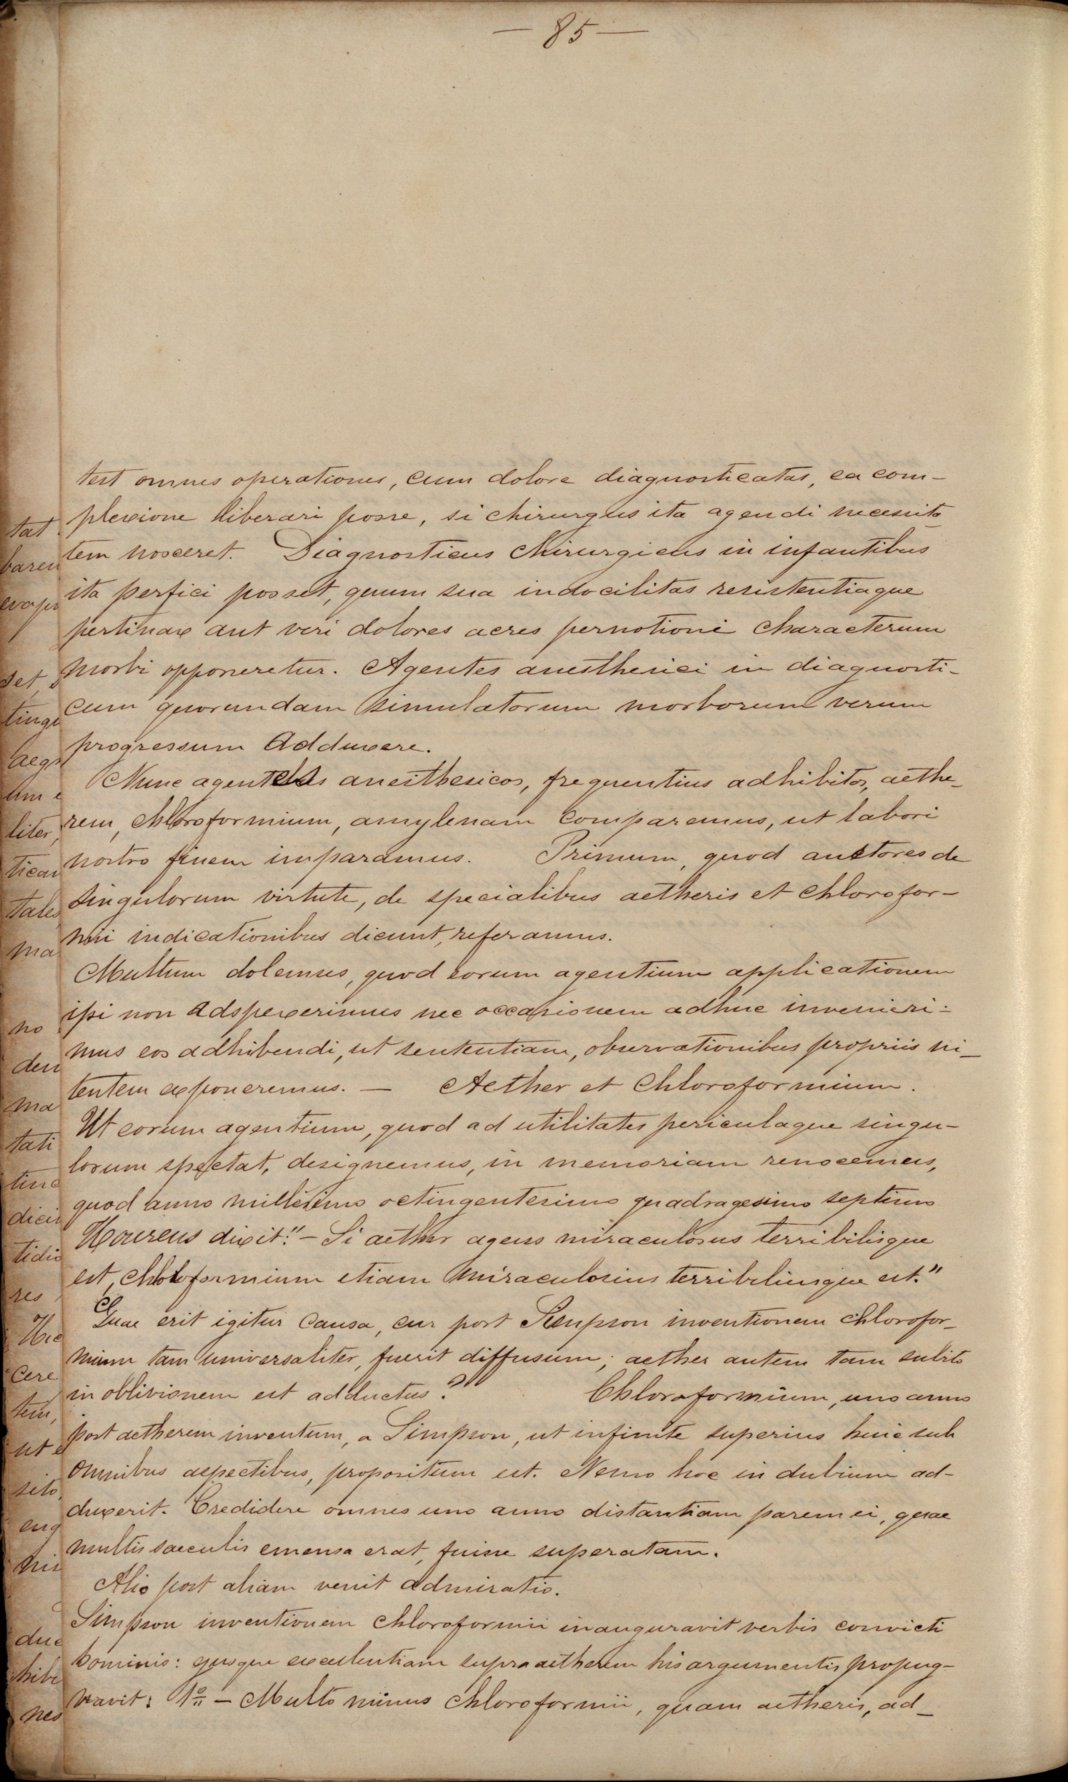 — 85 —
test omnes operationes, cum dolore diagnosticatas, ea com-
plexione liberari posse, si chirurgus ita agendi necessita
tem nosceret. Diagnosticus chirurgicus in infantibus
ita perfici posset, quum sua indocilitas resistentiaque
pertinax aut veri dolores acres pernotioni characterum
morbi opponeretur. Agentes anesthesici in diagnosti-
cum quorundam simulatorum morborum verum
progressum adduxere.
Nunc agentes anesthesicos, frequentius adhibitos, aethe-
rem, chloroformium, amylenam comparemus, ut labori
nostro finem imparamus. Primum, quod auctores de
singulorum virtute, de specialibus aetheris et chlorofor-
mii indicationibus dicunt, referamus.
Multum dolemus, quod eorum agentium applicationem
ipsi non adspexerimus nec occasionem adhuc inveneri-
mus eos adhibendi, ut sententiam, observationibus propriis ni-
tentem exponeremus. — Aether et Chloroformium.
Ut eorum agentium, quod ad utilitates periculaque singu-
lorum spectat, designemus, in memoriam renocemus,
quod anno millesimo octingentesimo quadragesimo septimo
dixit: "— Si aether agens miraculosus terribilisque
est, chloroformium etiam miraculosius terribiliusque est."
Quae erit igitur causa, cur post Simpson inventionem chlorofor-
mium tam universaliter, fuerit diffusum; aether autem tam subito
in oblivionem est adductus? Chloroformium, uno anno
post aetherem inventum, a Simpson, ut infinite superius huic sub
omnibus aspectibus, propositum est. Nemo hoc in dubium ad-
duxerit. Credidere omnes uno anno distantiam parem ei, quae
multis saeculis emensa erat, fuisse superatam.
Alio post aliam venit admiratio.
Simpson inventionem chloroformii inauguravit verbis convicti
hominis: ejusque excellentiam supra aetherem his argumentis propug-
navit: 1º — Multo minus chloroformii, quam aetheris, ad-